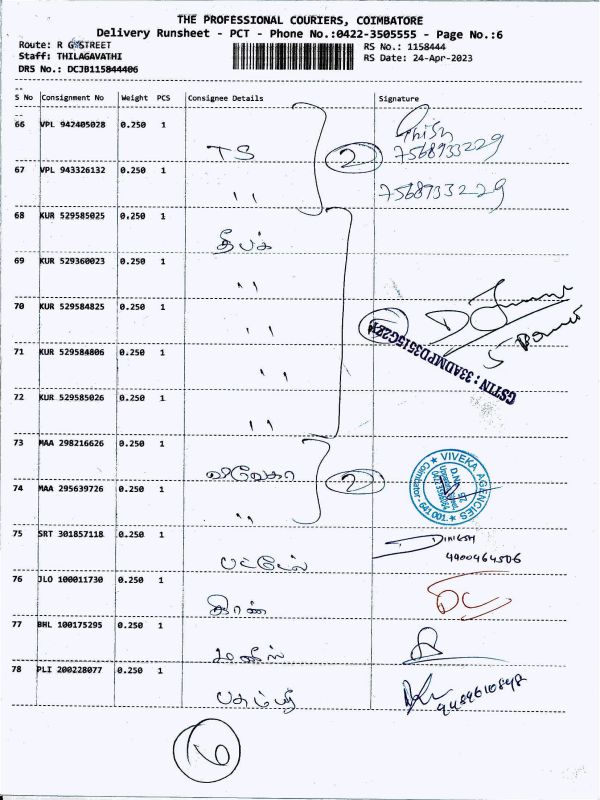 THE PROFESSIONAL COURIERS, COIMBATORE
Delivery Runsheet - PCT - Phone No.:0422-3505555 - Page No.:6
Route: R G STREET
RS No.: 1158444
Staff: THILAGAVATHI
RS Date: 24-Apr-2023
DRS No.: DCJB115844406
S No Consignment No Weight PCS Consignee Details Signature
66 VPL 942405028 0.250 1 TS 2
7568933229
67 VPL 943326132 0.250 1 ,, 7568933229
68 KUR 529585025 0.250 1 தீபக்
69 KUR 529360023 0.250 1 ,,
70 KUR 529584825 0.250 1 ,,
71 KUR 529584806 0.250 1 ,,
GSTIN : 33ADMPD3515G2
72 KUR 529585026 0.250 1 ,,
73 MAA 298216626 0.250 1 விவேகா 2
VIVEKA AGENCIES
Coimbator - 641 001.
74 MAA 295639726 0.250 1 ,,
75 SRT 301857118 0.250 1 பட்டேல் DINESH
76 JLO 100011730 0.250 1
77 BHL 100175295 0.250 1
78 PLI 200228077 0.250 1
6